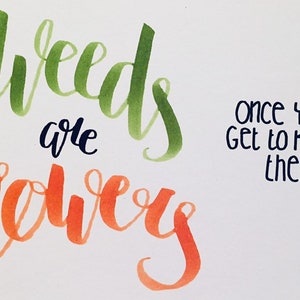 weeds
are
lowers
once y
Get to k
the